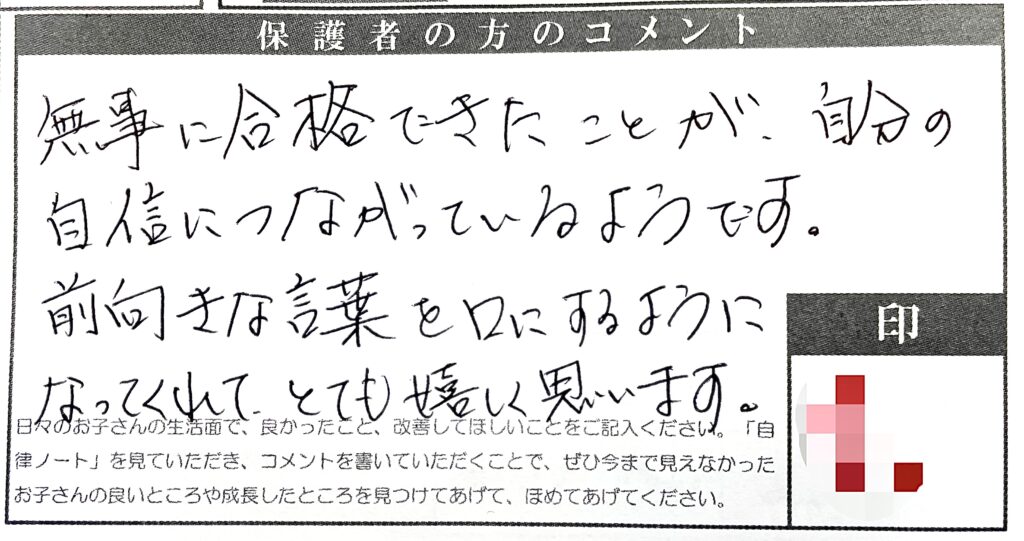 保護者の方のコメント
無事に合格できたことが、自分の
自信につながっているようです。
前向きな言葉を口にするように
なってくれて、とても嬉しく思います。
印
日々のお子さんの生活面で、良かったこと、改善してほしいことをご記入ください。「自
律ノート」を見ていただき、コメントを書いていただくことで、ぜひ今まで見えなかった
お子さんの良いところや成長したところを見つけてあげて、ほめてあげてください。